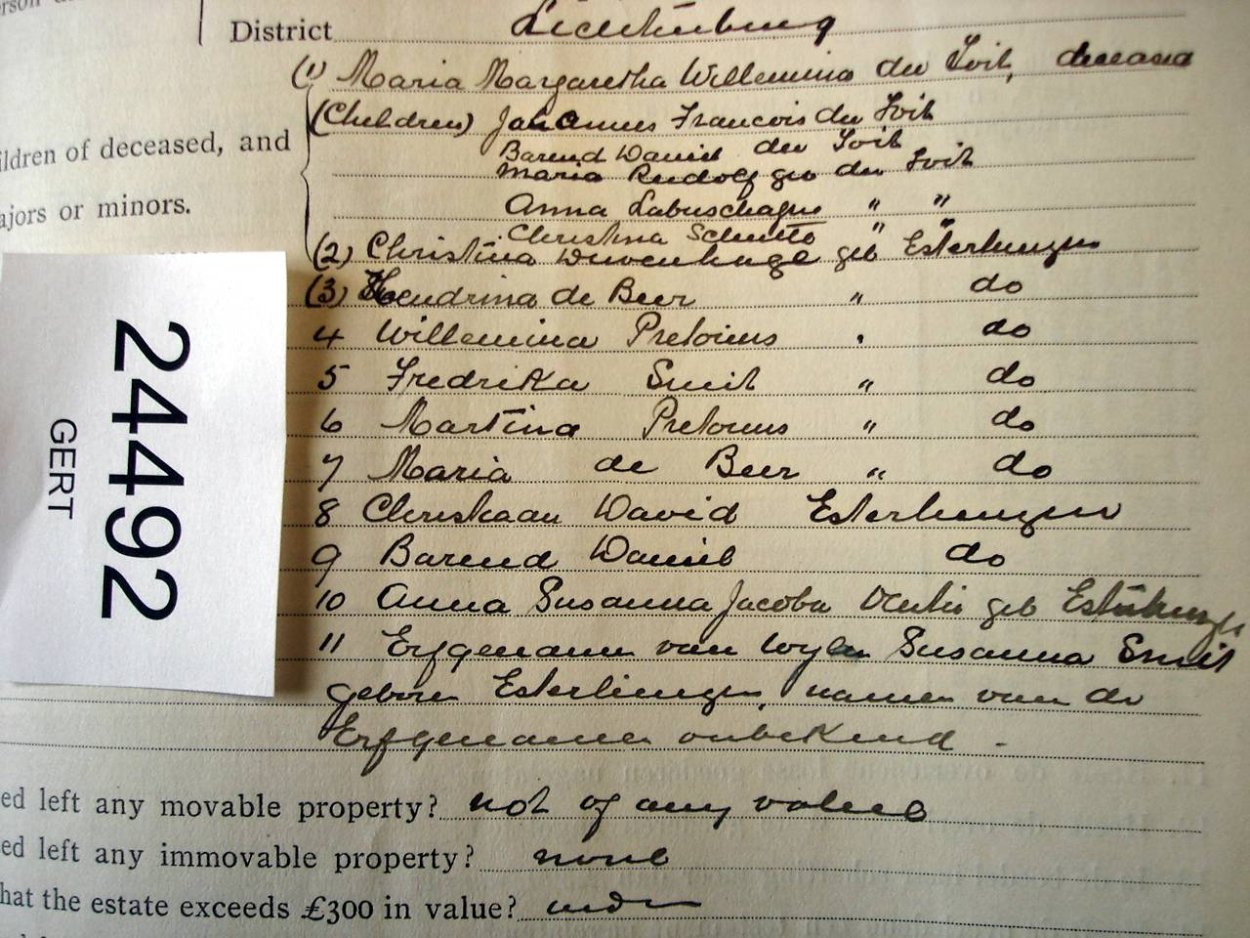 District Lichtenburg
(1) Maria Margaretha Willemina du Toit, deceased
(Children) Johannes Francois du Toit
ildren of deceased, and
Barend Daniel du Toit
Maria Rudolf geb du Toit
ajors or minors.
Anna Labuschagne " "
Christina Schutte " "
(2) Christina Duvenhage geb Esterhuyzen
(3) Hendrina de Beer " do
4 Willemina Pretorius " do
5 Fredrika Smit " do
6 Martina Pretorius " do
7 Maria de Beer " do
8 Christiaan David Esterhuyzen
9 Barend Daniel do
10 Anna Susanna Jacoba geb Esterhuyzen
11 Erfgenamen van wylen Susanna Smit
geboren Esterhuyzen, namen van de
Erfgenamen onbekend.
24492
GERT
ed left any movable property? not of any value
ed left any immovable property? none
hat the estate exceeds £300 in value?